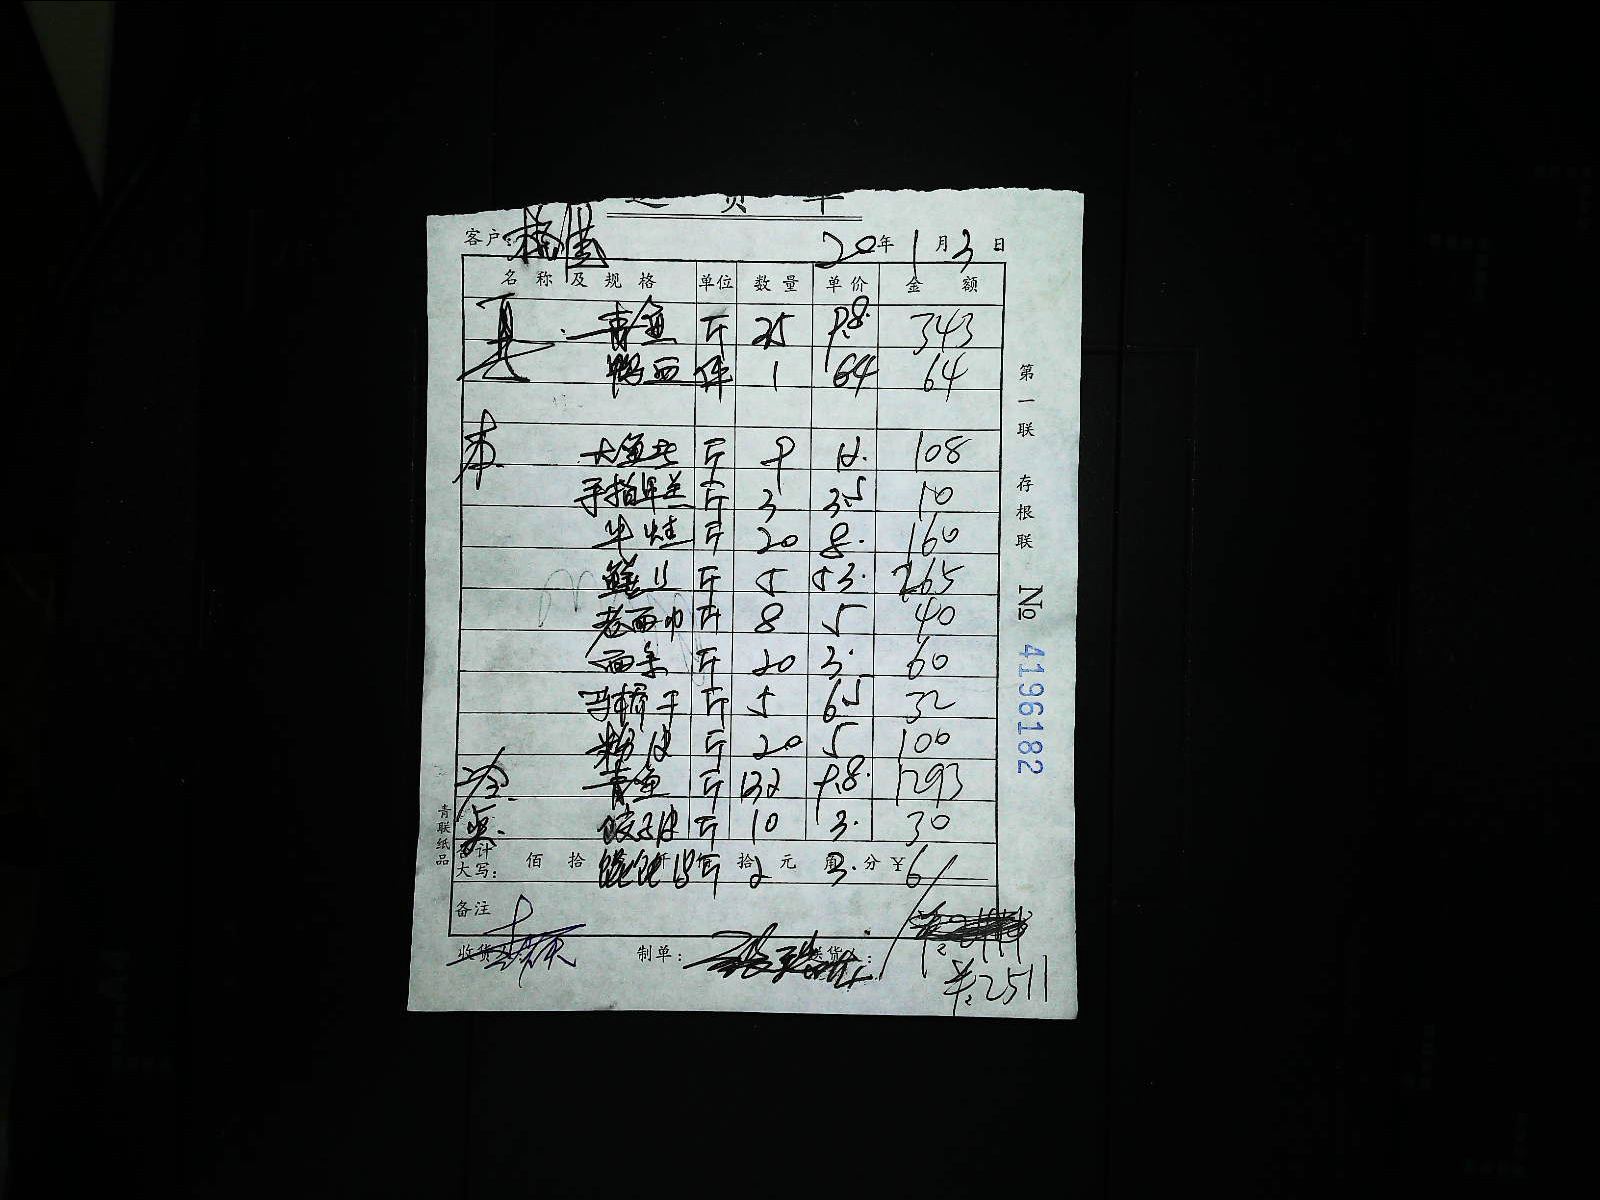 送货单
客户:
20年1月3日
名称及规格 单位 数量 单价 金额
青鱼 斤 35 9.8 343
鸭血 件 1 64 64
本 大鱼头 斤 9 12. 108
手指早兰 斤 3 3.5 10
牛 斤 20 8. 160
斤 5 53. 265
老面巾 斤 8 5 40
面条 斤 20 3. 60
马桥干 斤 5 6.5 32
粉皮 斤 20 5 100
冷 青鱼 斤 132 9.8. 1293
点 饺子皮 斤 10 3. 30
合计大写: 佰 拾 仟 佰 拾 元 角 分 ¥
馄饨皮 斤 2 3. 6
备注
收货
制单:
送货人:
2511
第一联 存根联 № 4196182
青联纸品